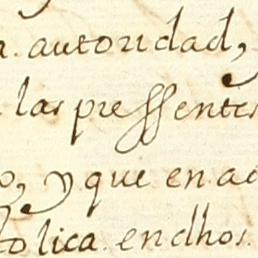 autoridad,
las pressentes
y que en
en dhos.